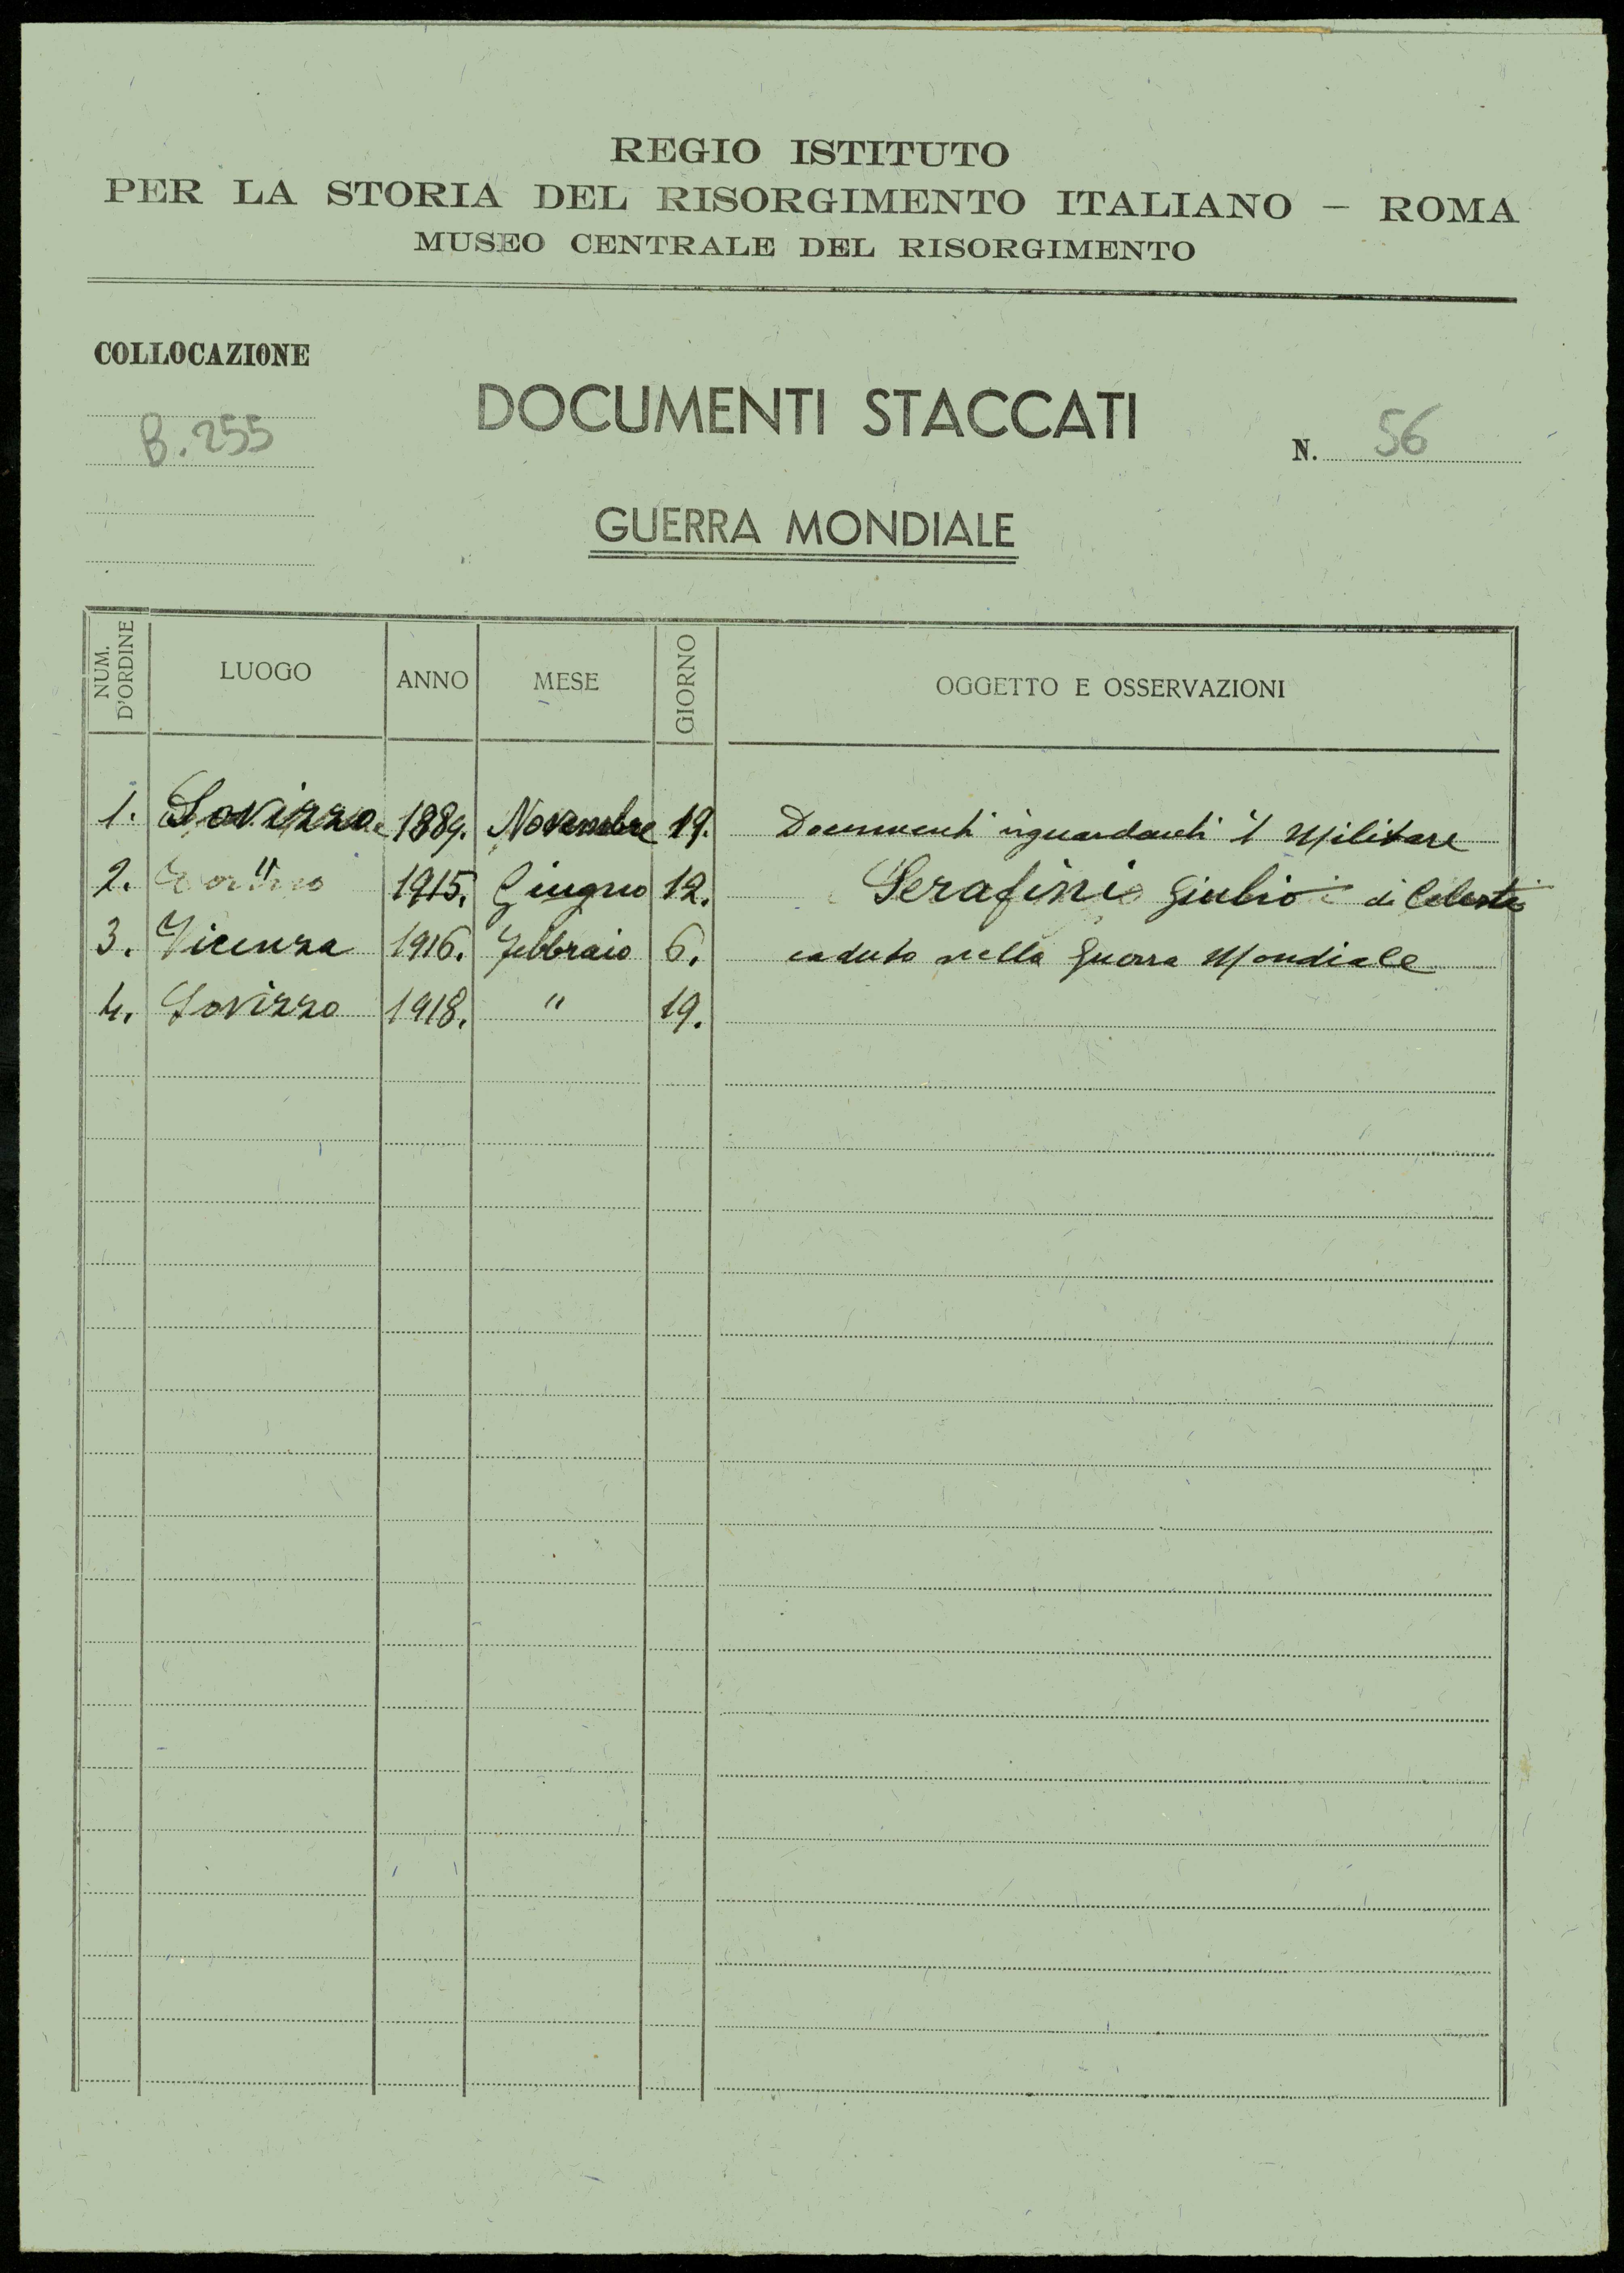 REGIO ISTITUTO
PER LA STORIA DEL RISORGIMENTO ITALIANO – ROMA
MUSEO CENTRALE DEL RISORGIMENTO
COLLOCAZIONE
B. 255
DOCUMENTI STACCATI
N. 56
GUERRA MONDIALE
NUM. D'ORDINE LUOGO ANNO MESE GIORNO OGGETTO E OSSERVAZIONI
1. Sovizzo 1889. Novembre 19. Documenti riguardanti il Militare
2. " 1915. Giugno 12. Serafini Giulio di Celeste
3. Vicenza 1916. Febbraio 6. caduto nella Guerra Mondiale
4. Sovizzo 1918. " 19.